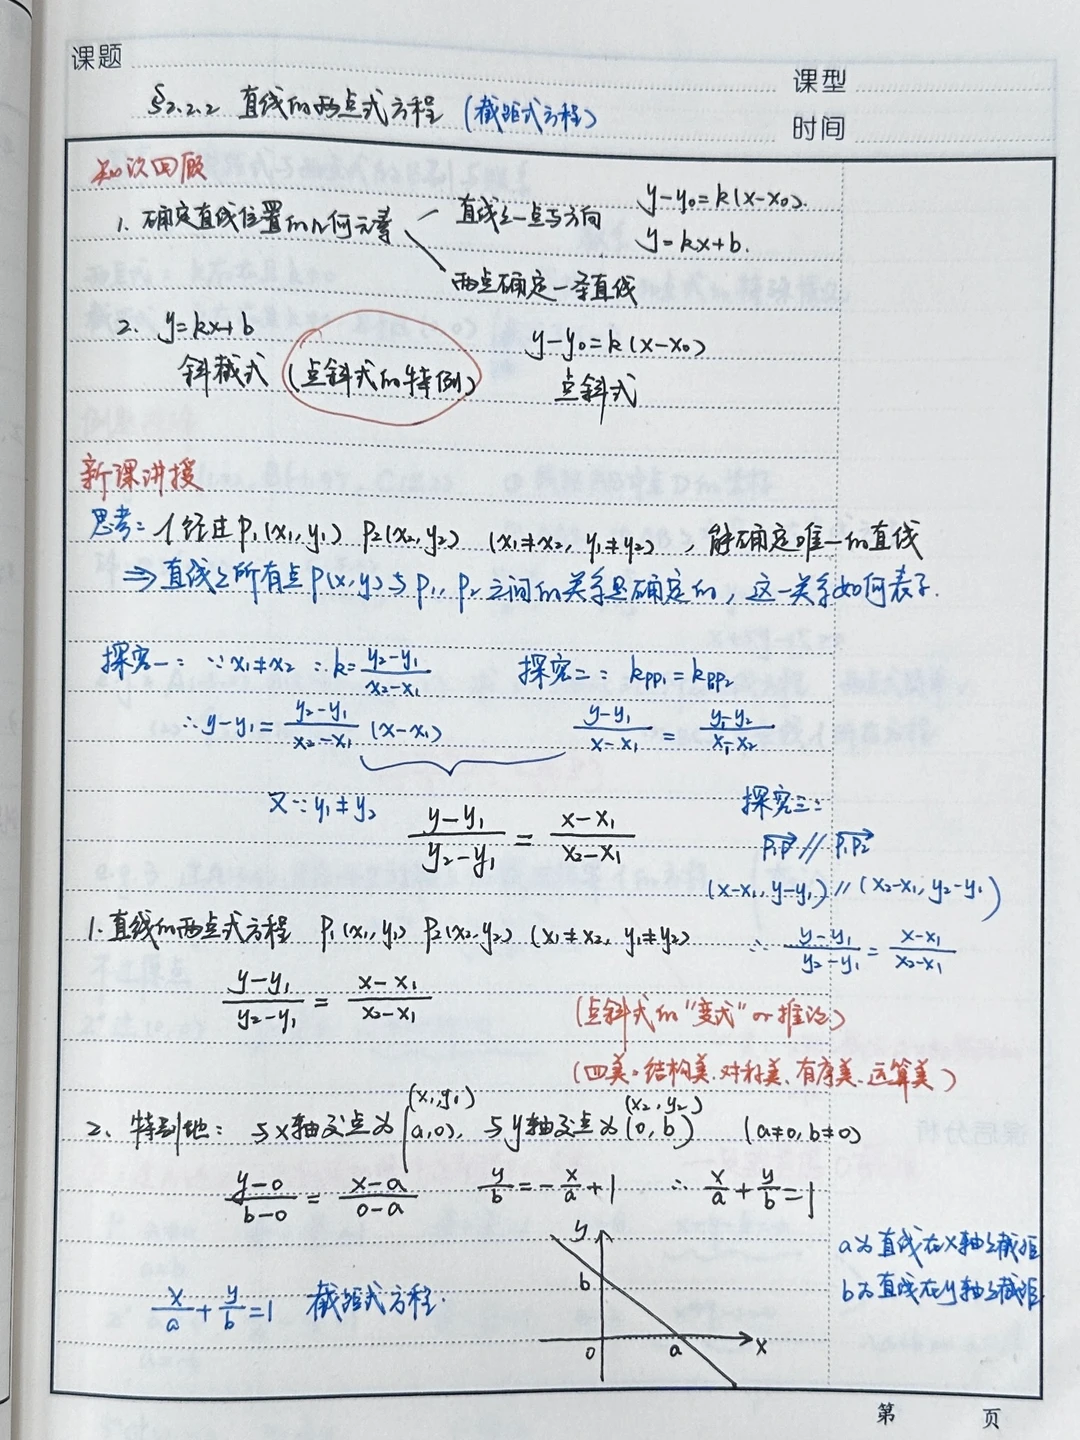 课题
§2.2.2 直线的两点式方程 (截距式方程)
课型
时间
知识回顾
1. 确定直线位置的几何元素 直线上一点与方向 y-y₀=k(x-x₀).
y=kx+b.
两点确定一条直线
2. y=kx+b y-y₀=k(x-x₀)
斜截式 (点斜式的特例) 点斜式
新课讲授
思考: 1个经过P₁(x₁,y₁) P₂(x₂,y₂) (x₁≠x₂, y₁≠y₂), 能确定唯一的直线
⇒ 直线上所有点P(x,y)与P₁, P₂之间的关系是确定的, 这一关系如何表示.
探究一: ∵x₁≠x₂ ∴k=(y₂-y₁)/(x₂-x₁) 探究二: k_PP₁=k_PP₂
∴y-y₁=(y₂-y₁)/(x₂-x₁) (x-x₁) (y-y₁)/(x-x₁) = (y-y₂)/(x-x₂)
又∵y₁≠y₂ (y-y₁)/(y₂-y₁) = (x-x₁)/(x₂-x₁)
探究三:
P₁P // P₁P₂
(x-x₁, y-y₁) // (x₂-x₁, y₂-y₁)
∴ (y-y₁)/(y₂-y₁) = (x-x₁)/(x₂-x₁)
1. 直线的两点式方程 P₁(x₁,y₁) P₂(x₂,y₂) (x₁≠x₂, y₁≠y₂)
(y-y₁)/(y₂-y₁) = (x-x₁)/(x₂-x₁)
(点斜式的"变式" or 推论)
(四美:结构美、对称美、有序美、运算美)
(x₁,y₁) (x₂,y₂)
2. 特别地: 与x轴交点为(a,0), 与y轴交点为(0,b) (a≠0,b≠0)
(y-0)/(b-0) = (x-a)/(0-a) y/b=-x/a+1 ∴ x/a+y/b=1
y
a为直线在x轴上截距
b为直线在y轴上截距
b
x/a+y/b=1 截距式方程.
0 a x
第 页